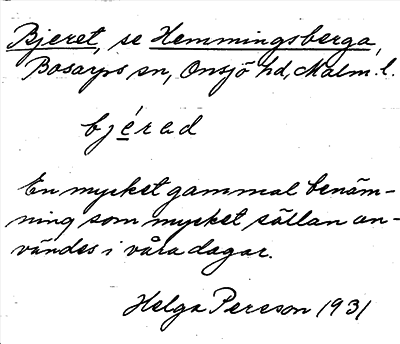 Bjeret, se Hemmingsberga,
Bosarps sn, Onsjö hd, Malm. l.
bjérad
En mycket gammal benäm-
ning som mycket sällan an-
vändes i våra dagar.
Helga Persson 1931